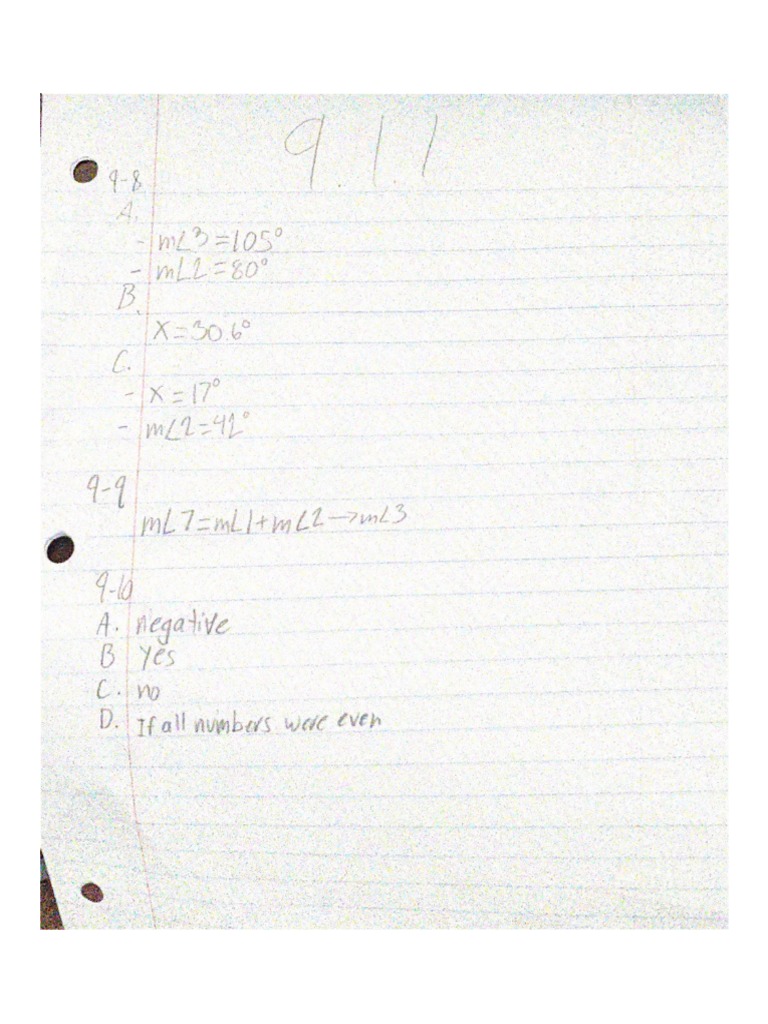 9.1.1
9-8
A.
- m∠3=105°
- m∠2=80°
B.
x=30.6°
C.
- x=17°
- m∠2=42°
9-9
m∠7=m∠1+m∠2→m∠3
9-10
A. negative
B yes
C. no
D. If all numbers were even